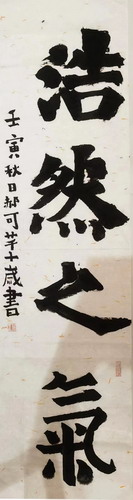 浩然之氣
壬寅秋日郝可芊十歲書